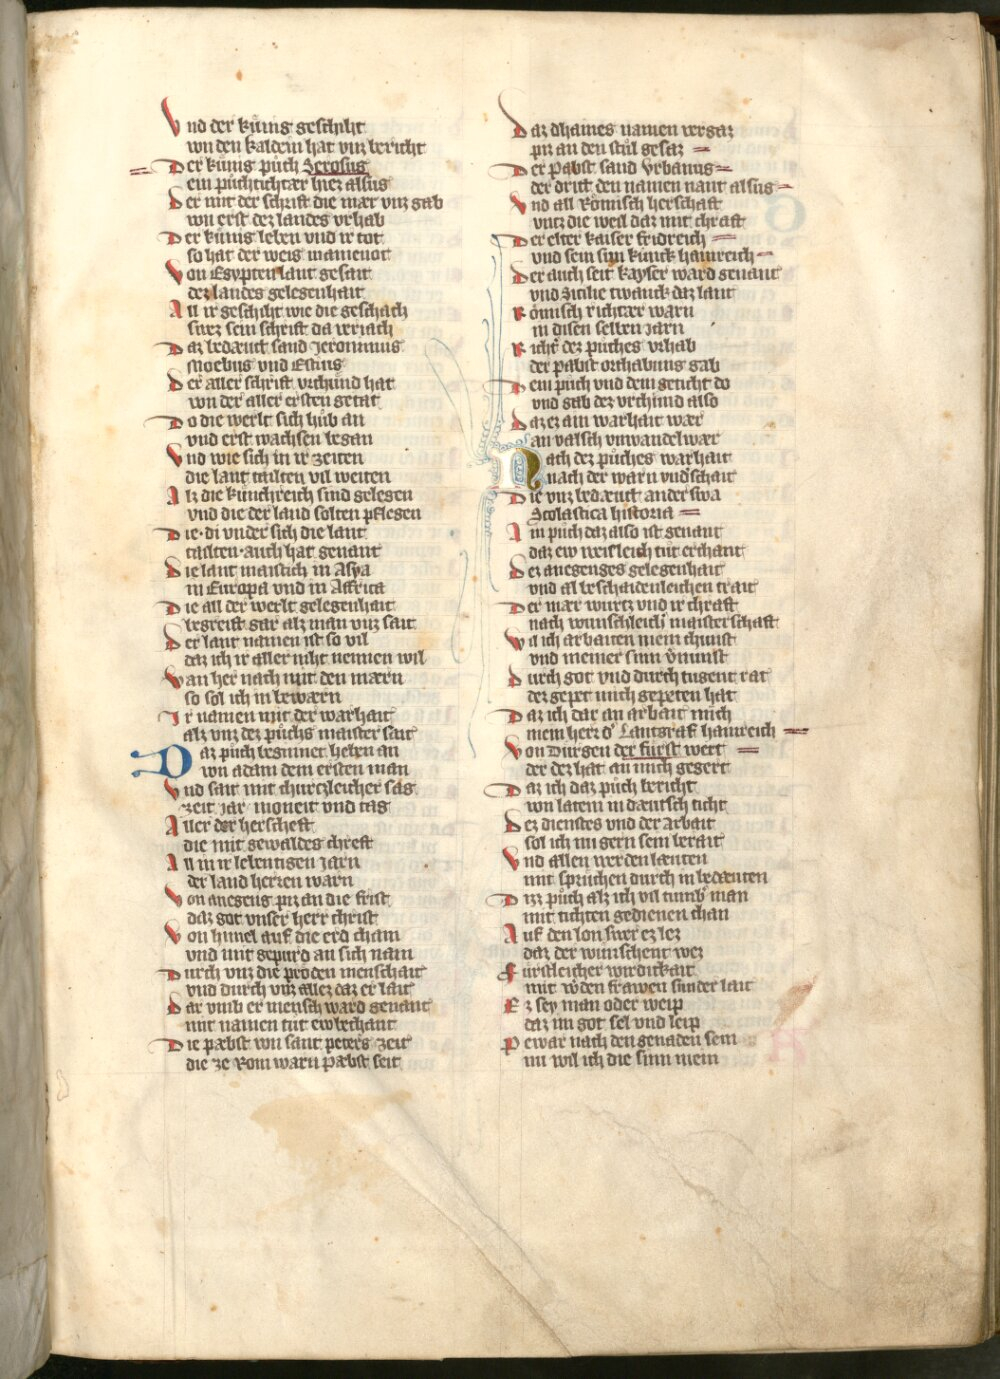 Vnd der kuͤnig geschiht
von den kaldein hat vnz bericht
Der kuͤnig puͤch Zerosus
ein puͤchtichtær hiez alsus
Der mit der schrift die mær vnz gab
von erst dez landes vrhab
Der kuͤnig leben vnd ir tot
so hat der weis manenot
Von Egypten lant gesait
dez landes gelegenhait
All ir geschiht wie die geschach
swez sein schrift da veriach
Daz bedæut sand Jeronimus
Moebus vnd Estius
Der aller schrift vrchund hat
von der aller ersten getat
Do die werlt sich huͤb an
vnd erst wachsen began
Vnd wie sich in ir zeiten
die lant tailten vil weiten
Alz die kuͤnchreich sind gelegen
vnd die der land solten pflegen
Die di vnder sich die lant
tailten auch hat genant
Die lant maistich in Asya
in Europa vnd in Affrica
Die all der werlt gelegenhait
begreift gar alz man vnz sait
Der lant namen ist so vil
daz ich ir aller niht nennen wil
Wan her nach mit den mærn
so sol ich in bewærn
Ir namen mit der warhait
alz vnz dez puͤchs maister sait
Daz puͤch beginnet heben an
von adam dem ersten man
Vnd sait mit churtzleicher sag
zeit jar moneit vnd tag
Aller der herscheft
die mit gewaldes chreft
All in ir lebentigen jarn
der land herren warn
Von anegeng piz an die frist
daz got vnser herr christ
Von himel auf die erd cham
vnd mit gepurd an sich nam
Durch vnz die proden menschait
vnd durch vnz allez daz er lait
Dar vmb er mensch ward genant
mit namen tuͤt ew bechant
Die pæbst von sant peters zeit
die ze Rom warn pæbst seit
Daz dhaines namen vergaz
piz an den stuͤl gesaz
Der pabst sand Vrbanus
der dritt den namen nant alsus
Vnd all Roͤmisch herschaft
vntz die weil daz mit chraft
Der elter kaiser fridreich
vnd sein sun kuͤnck hainreich
Der auch seit kayser ward genant
vnd Sicilie twanck daz lant
Roͤmisch richtær warn
in disen selben jarn
Richt dez puͤches vrhab
der pabst vrchabung gab
Dem puͤch vnd dem geticht do
vnd gab dez vrchund also
Daz ez ain warhait wær
an valsch vnwandelwær
Nach dez puͤches warhait
nach der warn vndschait
Die vnz bedæut anderswa
Scolastica historia
Ain puͤch daz also ist genant
daz ew weisleich tuͤt erchant
Dez anegenges gelegenhait
vnd al beschaidenleichen trait
Der mær wurtz vnd ir chraft
nach wunschleich maisterschaft
Wil ich arbaiten mein chunst
vnd meiner sinn vnunst
Durch got vnd durch tugent rat
dez gepet mich gepeten hat
Daz ich dar an arbait mich
mein herr d Lantgraf hainreich
Von Durgen der fuͤrst wert
der dez hat an mich gegert
Daz ich daz puͤch bericht
von latein in dæutsch ticht
Dez dienstes vnd der arbait
sol ich im gern sein berait
Vnd allen werden læuten
mit spruͤchen durch in bedæuten
Ditz puͤch alz ich vil tumb man
mit tichten gedienen chan
Auf den lon swer ez lez
daz der wunschent wez
Fuͤrstleicher wirdickait
mit wden frawen sunder lait
Ez sey man oder weip
daz im got sel vnd leip
Pewar nach den genaden sein
nu wil ich die sinn mein